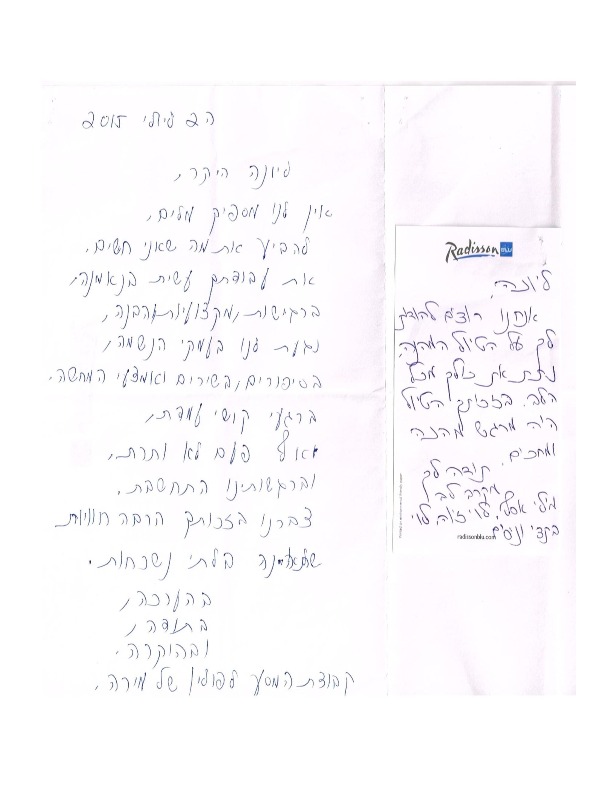 ה 2 יולי 2015
ליונה היקר,
אין לנו מספיק מלים,
להביע את מה שאני חשים.
את עבודתך עשית בנאמנה,
ברגישות, מקצועיות והבנה,
נגעת לנו בעמקי הנשמה,
בסיפורים, בשירים ואמצעי המחשה.
ברגעי קושי עמדת,
ואף פעם לא ותרת,
וברגשותינו התחשבת,
צברנו בזכותך הרבה חוויות
בלתי נשכחות.
בהערכה,
בתודה,
ובהוקרה.
קבוצת המסע לפולין של מירה.
Radisson BLU
ליונה,
אנחנו רוצים להודות
לך על הטיול המהנה,
נתת את כולך מכל
הלב. בזכותך הטיול
היה מרגש מהנה
ומחכים.
תודה לך
מקרב לב
radissonblu.com